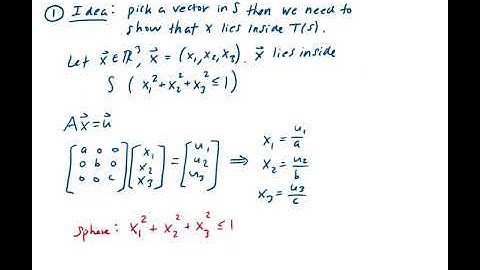 ① Idea: pick a vector in S then we need to
show that x lies inside T(S).
Let x⃗ ∈ ℝ³, x⃗ = (x₁, x₂, x₃). x⃗ lies inside
S ( x₁² + x₂² + x₃² ≤ 1 )
Ax⃗ = u⃗
[a 0 0; 0 b 0; 0 0 c] [x₁; x₂; x₃] = [u₁; u₂; u₃] ⟹ x₁ = u₁/a
x₂ = u₂/b
x₃ = u₃/c
sphere: x₁² + x₂² + x₃² ≤ 1